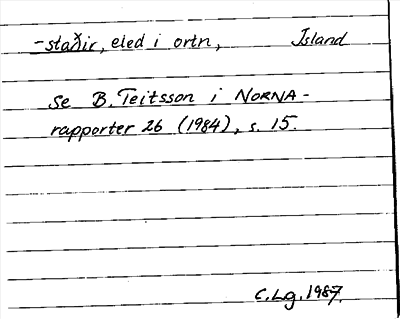 -staðir, eled i ortn, Island
Se B. Teitsson i NORNA-
rapporter 26 (1984), s. 15.
C.Lg. 1987.